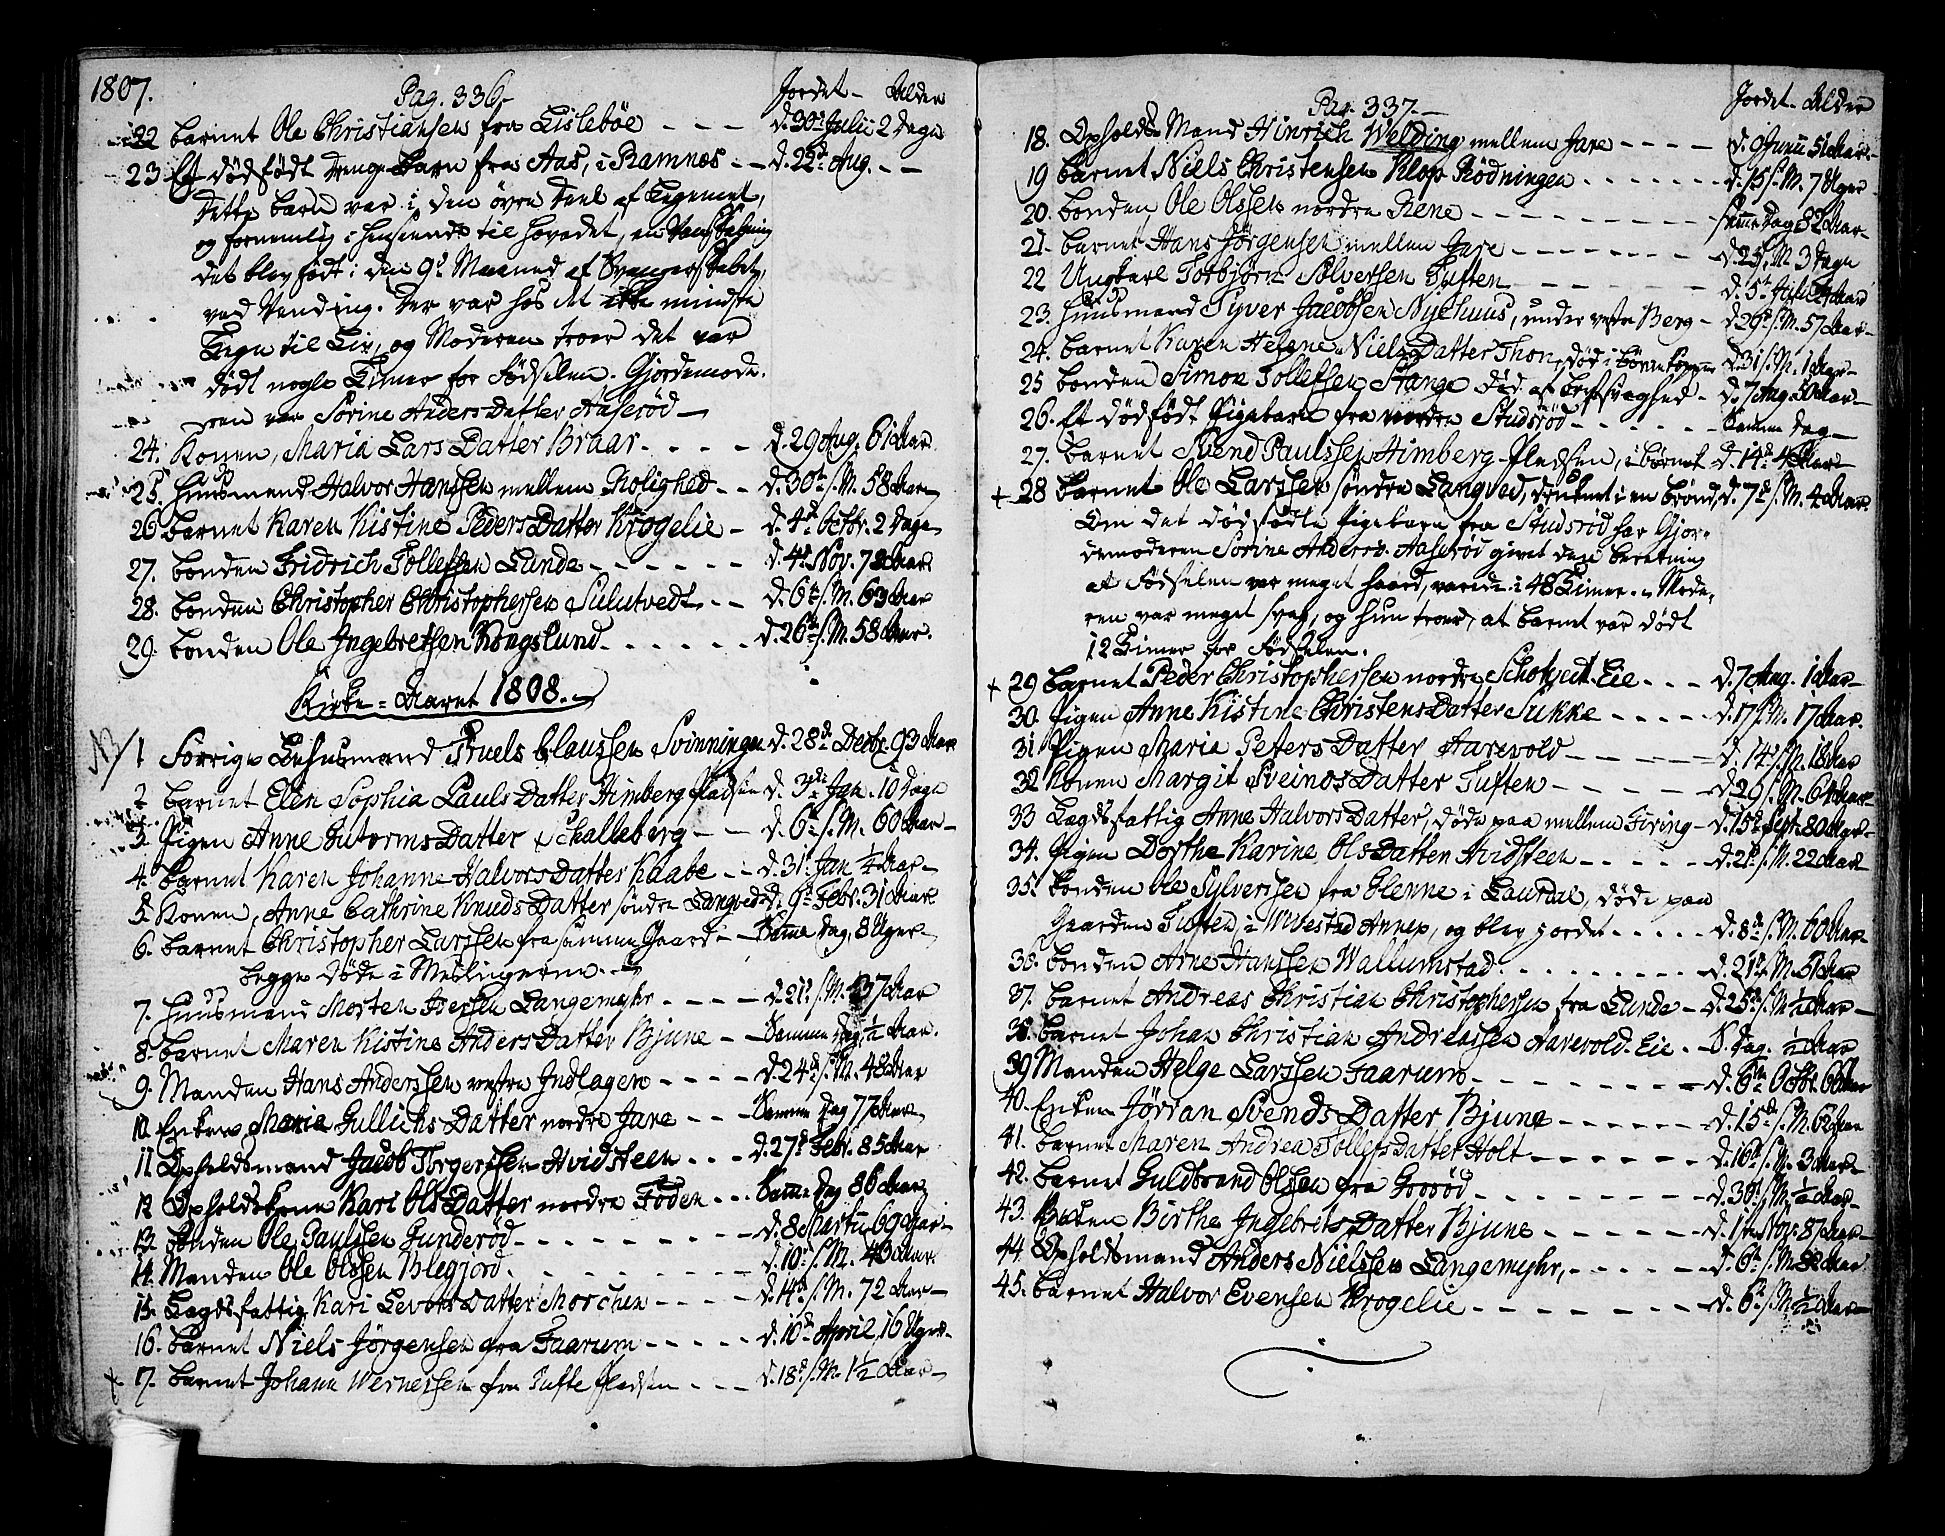 1807.
Pag. 336. Jordet - Alder
22 Barnet Ole Christiansen fra Lisleböe - - - d. 30t Julii 2 Dage
23 Et dödfödt Drengebarn fra Aas, i Ramnes - - d. 22d Aug. - -
Dette barn var i den övre Deel af Legemet,
og fornemlig i henseende til hovedet, en Vanskabning
det blev födt i den 9d Maaned af Svangerskabet,
ved Vending. Der var hos det ikke mindste
Tegn til Liv, og Moderen troer det var
dödt nogle Timer for Födselen. Gjordemode-
ren var Sörine Anders Datter Aaseröd -
24. Konen, Maria Lars Datter Braar. - - - d. 29 Aug. 61 Aar
25. Huusmand Halvor Hanssen mellem Rolighed - - d. 30te s. M. 58 Aar
26 Barnet Karen Kistine Peders Datter Krogelie - d. 4d Octbr. 2 Dage
27. Bonden Fridrich Tollefsen Lunde - - - - - - d. 4d Nov. 72 Aar
28. Bonden Christopher Christophersen Sulutvedt - - d. 6te s. M. 63 Aar
29. Bonden Ole Ingebretsen Kongslund. - - - - - d. 26te s. M. 58 Aar.
Kirke-Aaret 1808.
NB/ 1 Forrige Lehusmand Truels Claussen Svinningen d. 28de Decbr. 93 Aar
2 Barnet Elen Sophia Pauls Datter Himberg Pladsen d. 3die Jan. 10 Dage
3. Pigen Anne Gutorms Datter Schalleberg - - d. 6te s. M. 60 Aar -
4. Barnet Karen Johanne Halvors Datter Raabe - - d. 31t Jan ¼ Aar -
5. Konen, Anne Cathrine Knuds Datter söndre Langved d. 9de Febr. 31 Aar
6. Barnet Christopher Larssen fra samme Gaard - - Samme Dag, 8 Uger -
Begge döde i Meslingerne.
7. Huusmand Morten Iversen Langemyhr - - - - d. 21d s. M. 37 Aar
8. Barnet Maren Kistine Anders Datter Bjune - - Samme Dag, ½ Aar.
9. Manden Hans Anderssen vestre Indlagen - - - - d. 24d s. M. 48 Aar
10. Enken Maria Gullichs Datter nordre Jare - - - Samme Dag 77 Aar
11. Opholdsmand Jacob Torgerssen Hvidsteen - - - d. 27d Febr. 85 Aar
12 Opholdskone Kari Ols Datter nordre Föden - - - Samme Dag 86 Aar
13. Bonden Ole Paulssen Gunderöd - - - - - - - d. 8 Martii 69 Aar
14. Manden Ole Olssen Blegjord. - - - - - - d. 10d s. M. 43 Aar
15. Lægdsfattig Kari Levors Datter Morchen - - - - d. 14de s. M. 72 Aar -
16. Barnet Niels Jörgensen fra Faarum - - - - d. 10de April, 16 Uger -
+ 17. Barnet Johann Wernessen fra Tufte Pladsen - - - d. 18d s. M. 1½ Aar -
Pag. 337. - Jordet - Alder
18. Opholds-Mand Hinrich Welding mellem Jare - - - - d. 9 Junii 51 Aar -
19 Barnet Niels Christensen Klop Rödningen - - - - - d. 15 s. M. 7 Uger
20. Bonden Ole Olssen nordre Rene - - - - - - - Samme Dag 82 Aar -
21. Barnet Hans Jörgensen mellem Jare - - - - - - d. 25 s. M. 3 Dage
22 Ungkarl Torbjörn Sölversen Tuften - - - - - - d. 5te Julii Aar
23. Huusmand Syver Jacobsen Nyehuus, under vestre Berg - d. 29d s. M. 57 Aar -
24. Barnet Karen Helene Niels Datter Thon, död i Börnekopper d. 31 s. M. 1 Aar -
25 Bonden Simon Tollefsen Stange död af Brystsvaghed - d. 7 Aug. 50 Aar -
26. Et dödfödt Pigebarn fra nordre Studsröd - - - - - Samme Dag -
27. Barnet Svend Paulssen Himberg-Pladsen, i börnek. d. 14d 4 Aar -
+ 28 Barnet Ole Larssen söndre Langved, druknet i en Brönd, d. 7d s. M. 4 Aar.
Om det dödfödte Pigebarn fra Studsröd har Gjor-
demoderen Sörine Anders. Aaseröd givet den beretning
at Födselen var meget haard, varede i 48 Timer. - Mode,
ren var meget svag, og hun troer, at barnet var dödt
12 Timer for Födselen.
+ 29 Barnet Peder Christophersen nordre Schotvedt-Eie - - - d. 7 Aug. 1 Aar -
30. Pigen Anne Kistine Christens Datter Sukke - - - - - d. 17 s. M. 17 Aar.
31 Pigen Maria Peters Datter Aarevold - - - - - - d. 14d s. M. 18 Aar
32 Konen Margit Sveinos Datter Tuften - - - - - - d. 29 s. M. 64 Aar -
33 Lægdsfattig Anne Halvors Datter, döde paa mellem Firing - d. 15d Sept. 80 Aar -
34. Pigen Dorthe Karine Ols Datter Hvidsteen - - - - - d. 21 s. M. 22 Aar
35. Bonden Ole Sylversen fra Glenne i Laurdal, döde paa
Gaarden Tuften, i Hvitestad Annex, og blev jordet - - - - - d. 8de s. M. 60 Aar
36. Bonden Arne Hanssen Wallumstad. - - - - - - - d. 21de s. M. 51 Aar
37. Barnet Andreas Christian Christophersen fra Lunde - d. 25de s. M. ½ Aar -
38. Barnet Johan Christian Andreassen Aarevold-Eie - - S. Dag. ½ Aar
39 Manden Helge Larssen Faarum - - - - - - - d. 6te Octbr. 66 Aar
40. Enken Jörran Svends Datter Bjune - - - - - - d. 15de s. M. 62 Aar
41. Barnet Maren Andrea Tollefs Datter Holt - - - - - - d. 16d s. M. 3 Aar -
42. Barnet Guldbrand Olssen fra Gorröd - - - - - - d. 30d s. M. ¼ Aar -
43. Birthe Ingebrets Datter Bjune - - - - - - d. 1te Nov. 87 Aar -
44. Opholdsmand Anders Nielssen Langemyhr, - - - - - d. 6te s. M. 82 Aar
45. Barnet Halvor Evensen Krogelie - - - - - - d. 6te s. M. ½ Aar -